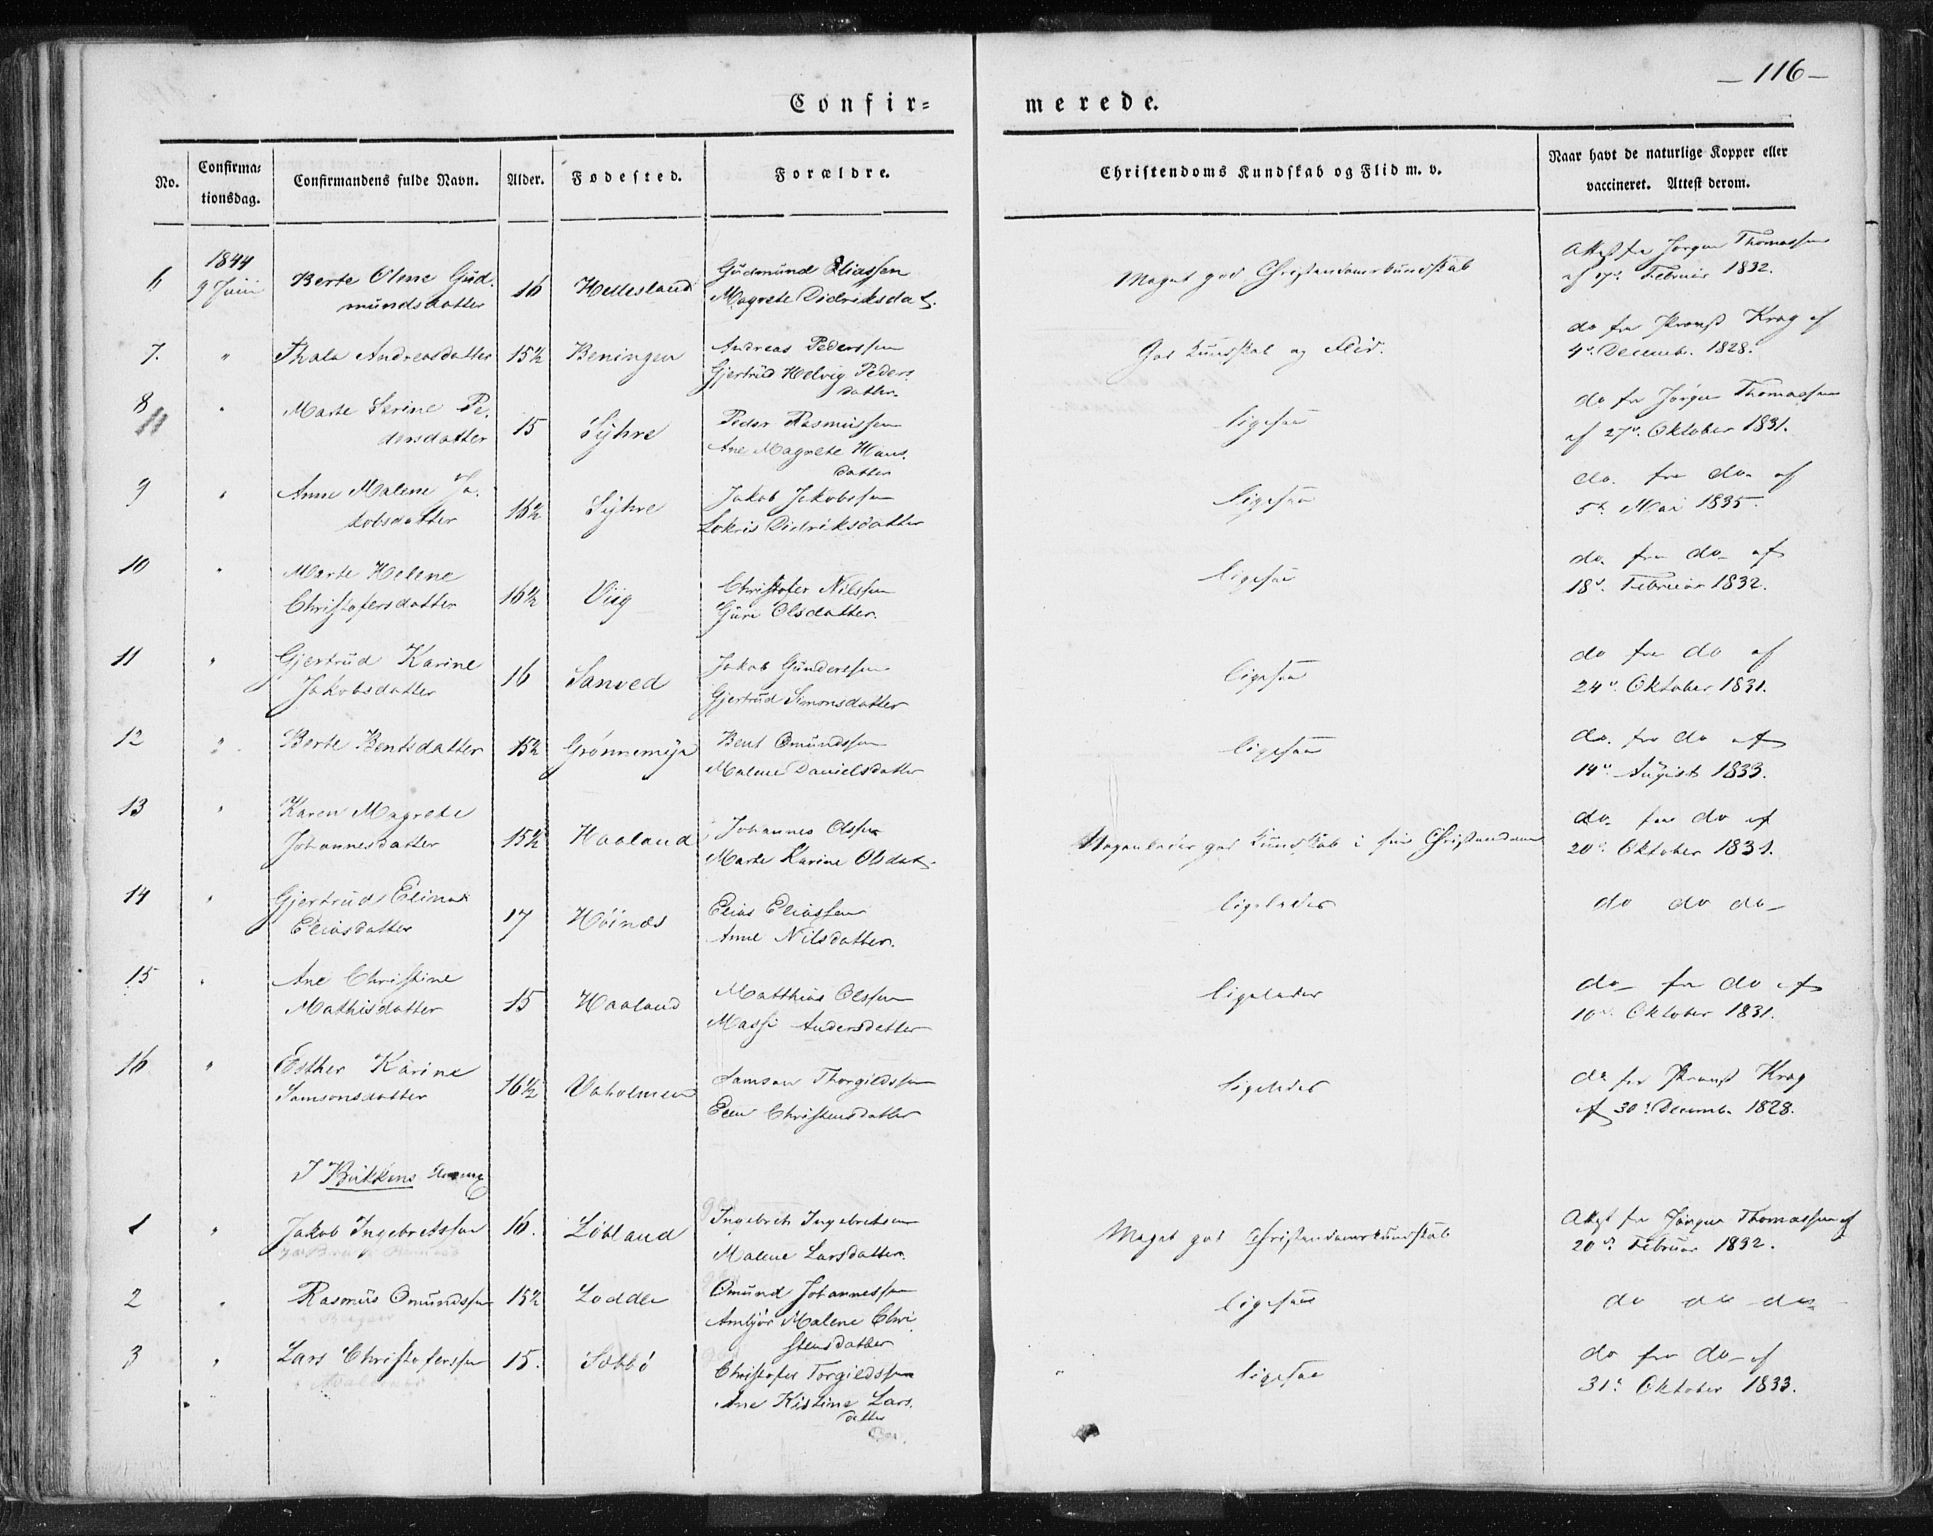 — 116 —
Confir= merede.
No.
Confirma=
tionsdag.
Confirmandens fulde Navn.
Alder.
Fødested.
Forældre.
Christendoms Kundskab og Flid m. v.
Naar havt de naturlige Kopper eller
vaccineret. Attest derom.
1844
6 9 Juni Berte Oline Gud-
mundsdatter 16 Hellesland
Gudmund Eliassen
Magrete Didriksdat.
Meget god Christendomskundskab
Attest fra Jørgen Thomassen
af 7de Februar 1832.
7. " Thala Andreasdatter 15½ Beningen
Andreas Pederssen
Gjertrud Helvig Peders
datter.
God Kundskab og Flid.
do fra Provst Krog af
4de Decemb. 1828.
8 " Marte Serine Pe-
dersdatter 15 Syhre
Peder Rasmussen
Ane Magrete Hans
datter
ligesaa
do. fra Jørgen Thomassen
af 27de Oktober 1831.
9 " Anne Malene Ja-
kobsdatter 16½ Syhre
Jakob Jakobssen
Lokris Didriksdatter
ligesaa
do. fra do af
5te Mai 1835.
10 " Marte Helene
Christofersdatter 16½ Viig
Christofer Nilssen
Guri Olsdatter.
ligesaa
do. fra do af
18de Februar 1832.
11 " Gjertrud Karine
Jakobsdatter 16 Sanved
Jakob Gunderssen
Gjertrud Simonsdatter
ligesaa
do fra do af
24de Oktober 1831.
12 " Berte Bentsdatter 15½ Grønnemyr
Bent Omundssen
Malene Danielsdatter
ligesaa
do. fra do af
14de August 1833.
13 " Karen Magrete
Johannesdatter 15½ Haaland
Johannes Olssen
Marte Karine Olsdat.
Nogenledes god Kundskab i sin Christendom
do fra do af
20de Oktober 1831.
14 " Gjertrud Elina
Eliasdatter 17 Høinæs
Elias Eliassen
Anne Nilsdatter.
ligeledes
do do do
15 " Ane Christine
Mathisdatter 15 Haaland
Matthias Olssen
Massi Andersdatter
ligeledes
do fra do af
10de Oktober 1831.
16 " Esther Karine
Samsonsdatter 16½ Vaholmen
Samson Thorgildssen
Elen Christensdatter
ligeledes
do fra Provst Krog
af 30te Decemb. 1828.
1 " Jakob Ingebretssen 16. Løbland
Ingebret Ingebretsen
Malene Larsdatter.
Meget god Christendomskundskab
Attest fra Jørgen Thomassen af
20de Februar 1832.
2 " Rasmus Omundssen 15½ Lodden
Omund Johannessen
Anbjør Malene Chri
stensdatter
ligesaa
do do do
3 " Lars Christoferssen 15. Sæbbø
Christofer Torgildssen
Ane Kistine Lars
datter
ligesaa
do fra do af
31te Oktober 1833.